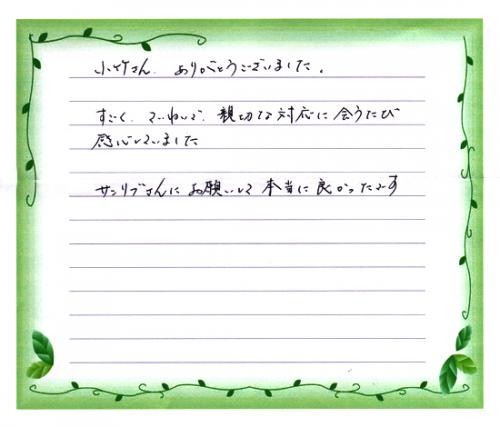 小竹さん、ありがとうございました。
すごく、ていねいで、親切な対応に会うたび
感心していました
サンリブさんにお願いして本当に良かったです